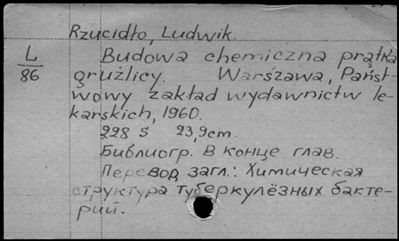 Rzucidło, Ludwik.
L
86
Budowa chemiczna prątka
gruźlicy. Warszawa, Państ-
wowy zakład wydawnictw le-
karskich, 1960.
228 s 23,9cm.
Библиогр. в конце глав.
Перевод загл.: Химическая
структура туберкулёзных бакте-
рий.